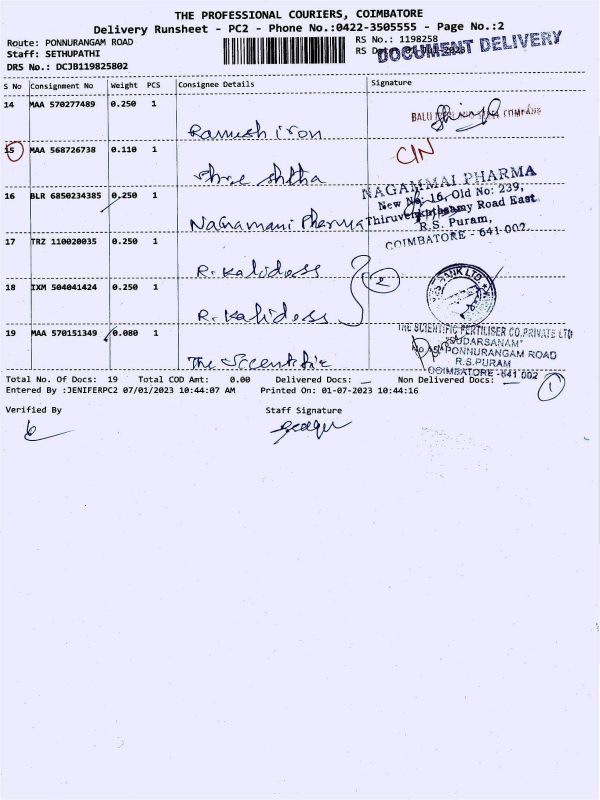 THE PROFESSIONAL COURIERS, COIMBATORE
Delivery Runsheet - PC2 - Phone No.:0422-3505555 - Page No.:2
Route: PONNURANGAM ROAD
RS No.: 1198258
Staff: SETHUPATHI
RS Date
DOCUMENT DELIVERY
DRS No.: DCJB119825802
S No Consignment No Weight PCS Consignee Details Signature
14 MAA 570277489 0.250 1
Ramesh iron
15 MAA 568726738 0.110 1
CIN
Shree
16 BLR 6850234385 0.250 1
Nagamani Pharma
NAGAMMAI PHARMA
New No: 16, Old No: 239,
Thiruvenkatasamy Road East
R.S. Puram,
COIMBATORE - 641 002.
17 TRZ 110020035 0.250 1
R. Kalidass
2
18 IXM 504041424 0.250 1
R. Kalidass
BANK LTD
19 MAA 570151349 0.080 1
The Scientific
THE SCIENTIFIC FERTILISER CO.PRIVATE LTD
"SUDARSANAM"
PONNURANGAM ROAD
R.S.PURAM
COIMBATORE -641 002
Total No. Of Docs: 19 Total COD Amt: 0.00 Delivered Docs: Non Delivered Docs:
1
Entered By :JENIFERPC2 07/01/2023 10:44:07 AM Printed On: 01-07-2023 10:44:16
Verified By Staff Signature